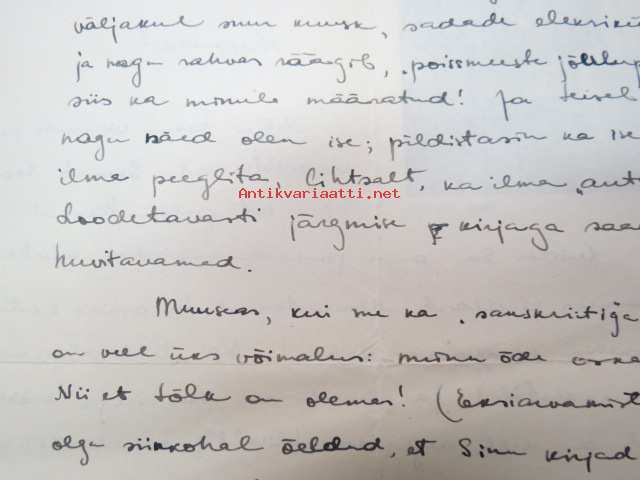 väljakul suur kuusk, sadade elektri
ja nagu rahvas räägib, „poissmeeste jõulup
siis ka minule määratud! Ja teisel
nagu näed olen ise; pildistasin ka ise
ilma peeglita, lihtsalt, ka ilma „aut
Antikvariaatti.net
Loodetavasti järgmise kirjaga saa
huvitavamed.
Muuseas, kui me ka „sanskriitiga
on veel üks võimalus: minu õde oska
Nii et tõlk on olemas! (Eksiarvamist
olgu siinkohal öeldud, et Sinu kirjad